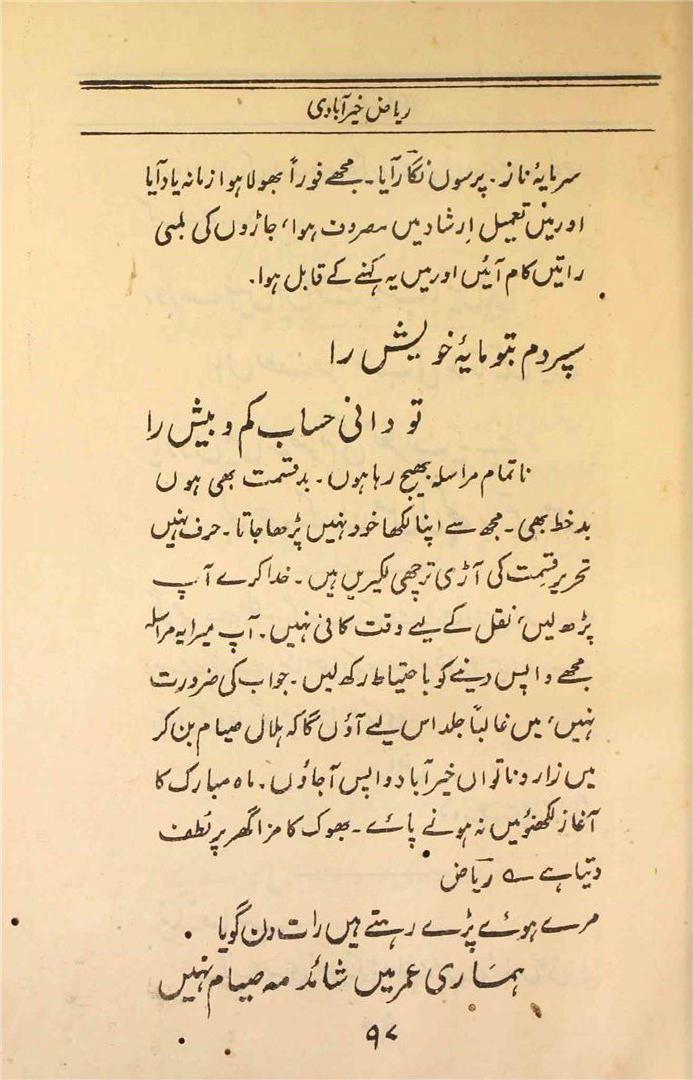 ریاض خیرآبادی
سرمایۂ ناز۔ پرسوں نگار آیا۔ مجھے فوراً بھولا ہوا زمانہ یاد آیا
اور میں تعمیل ارشاد میں مصروف ہوا، جاڑوں کی لمبی
راتیں کام آئیں اور میں یہ کہنے کے قابل ہوا۔
سپردم بتو مایۂ خویش را
تو دانی حساب کم و بیش را
ناتمام مراسلہ بھیج رہا ہوں۔ بدقسمت بھی ہوں
بدخط بھی۔ مجھ سے اپنا لکھا خود نہیں پڑھا جاتا۔ حرف نہیں
تحریر قسمت کی آڑی ترچھی لکیریں ہیں۔ خدا کرے آپ
پڑھ لیں، نقل کے لیے وقت کافی نہیں۔ آپ میرا یہ مراسلہ
مجھے واپس دینے کو باحتیاط رکھ لیں۔ جواب کی ضرورت
نہیں، میں غالباً جلد اس لیے آؤں گا کہ ہلال صیام بن کر
میں زار و ناتواں خیرآباد واپس آجاؤں۔ ماہ مبارک کا
آغاز لکھنؤ میں نہ ہونے پائے۔ بھوک کا مزا گھر پر لطف
دیتا ہے ؎ ریاض
مرے ہوئے پڑے رہتے ہیں رات دن گویا
ہماری عمر میں شائد مہ صیام نہیں
۹۷